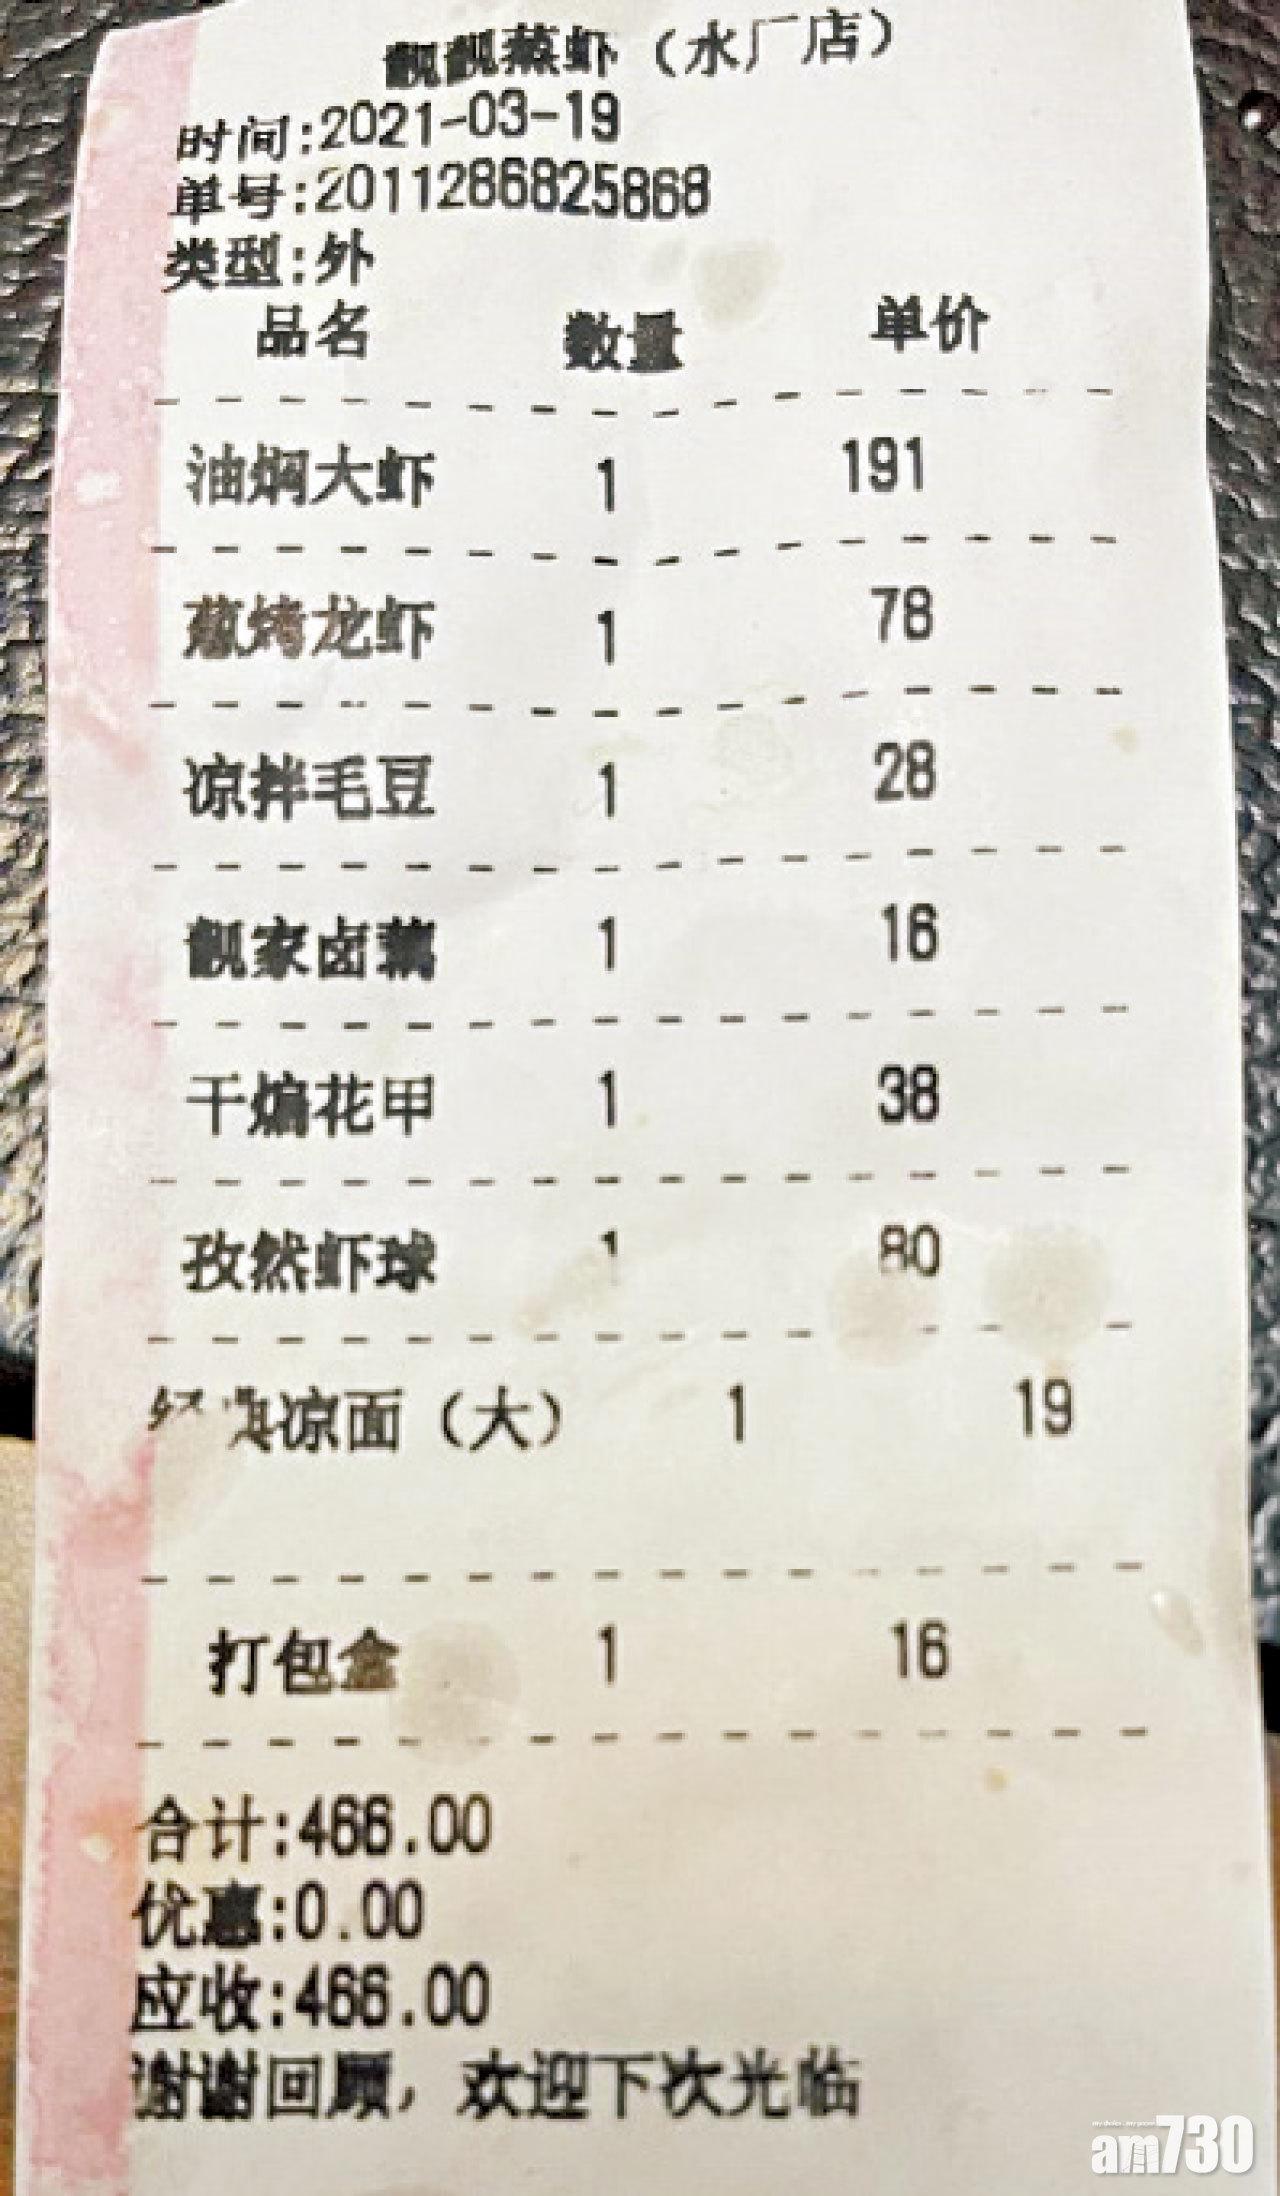 靓靓蒸虾（水厂店）
时间:2021-03-19
单号:2011286825868
类型:外
品名 数量 单价
油焖大虾 1 191
葱烤龙虾 1 78
凉拌毛豆 1 28
靓家卤藕 1 16
干煸花甲 1 38
孜然虾球 1 80
经典凉面（大） 1 19
打包盒 1 16
合计:466.00
优惠:0.00
应收:466.00
谢谢回顾，欢迎下次光临
am730